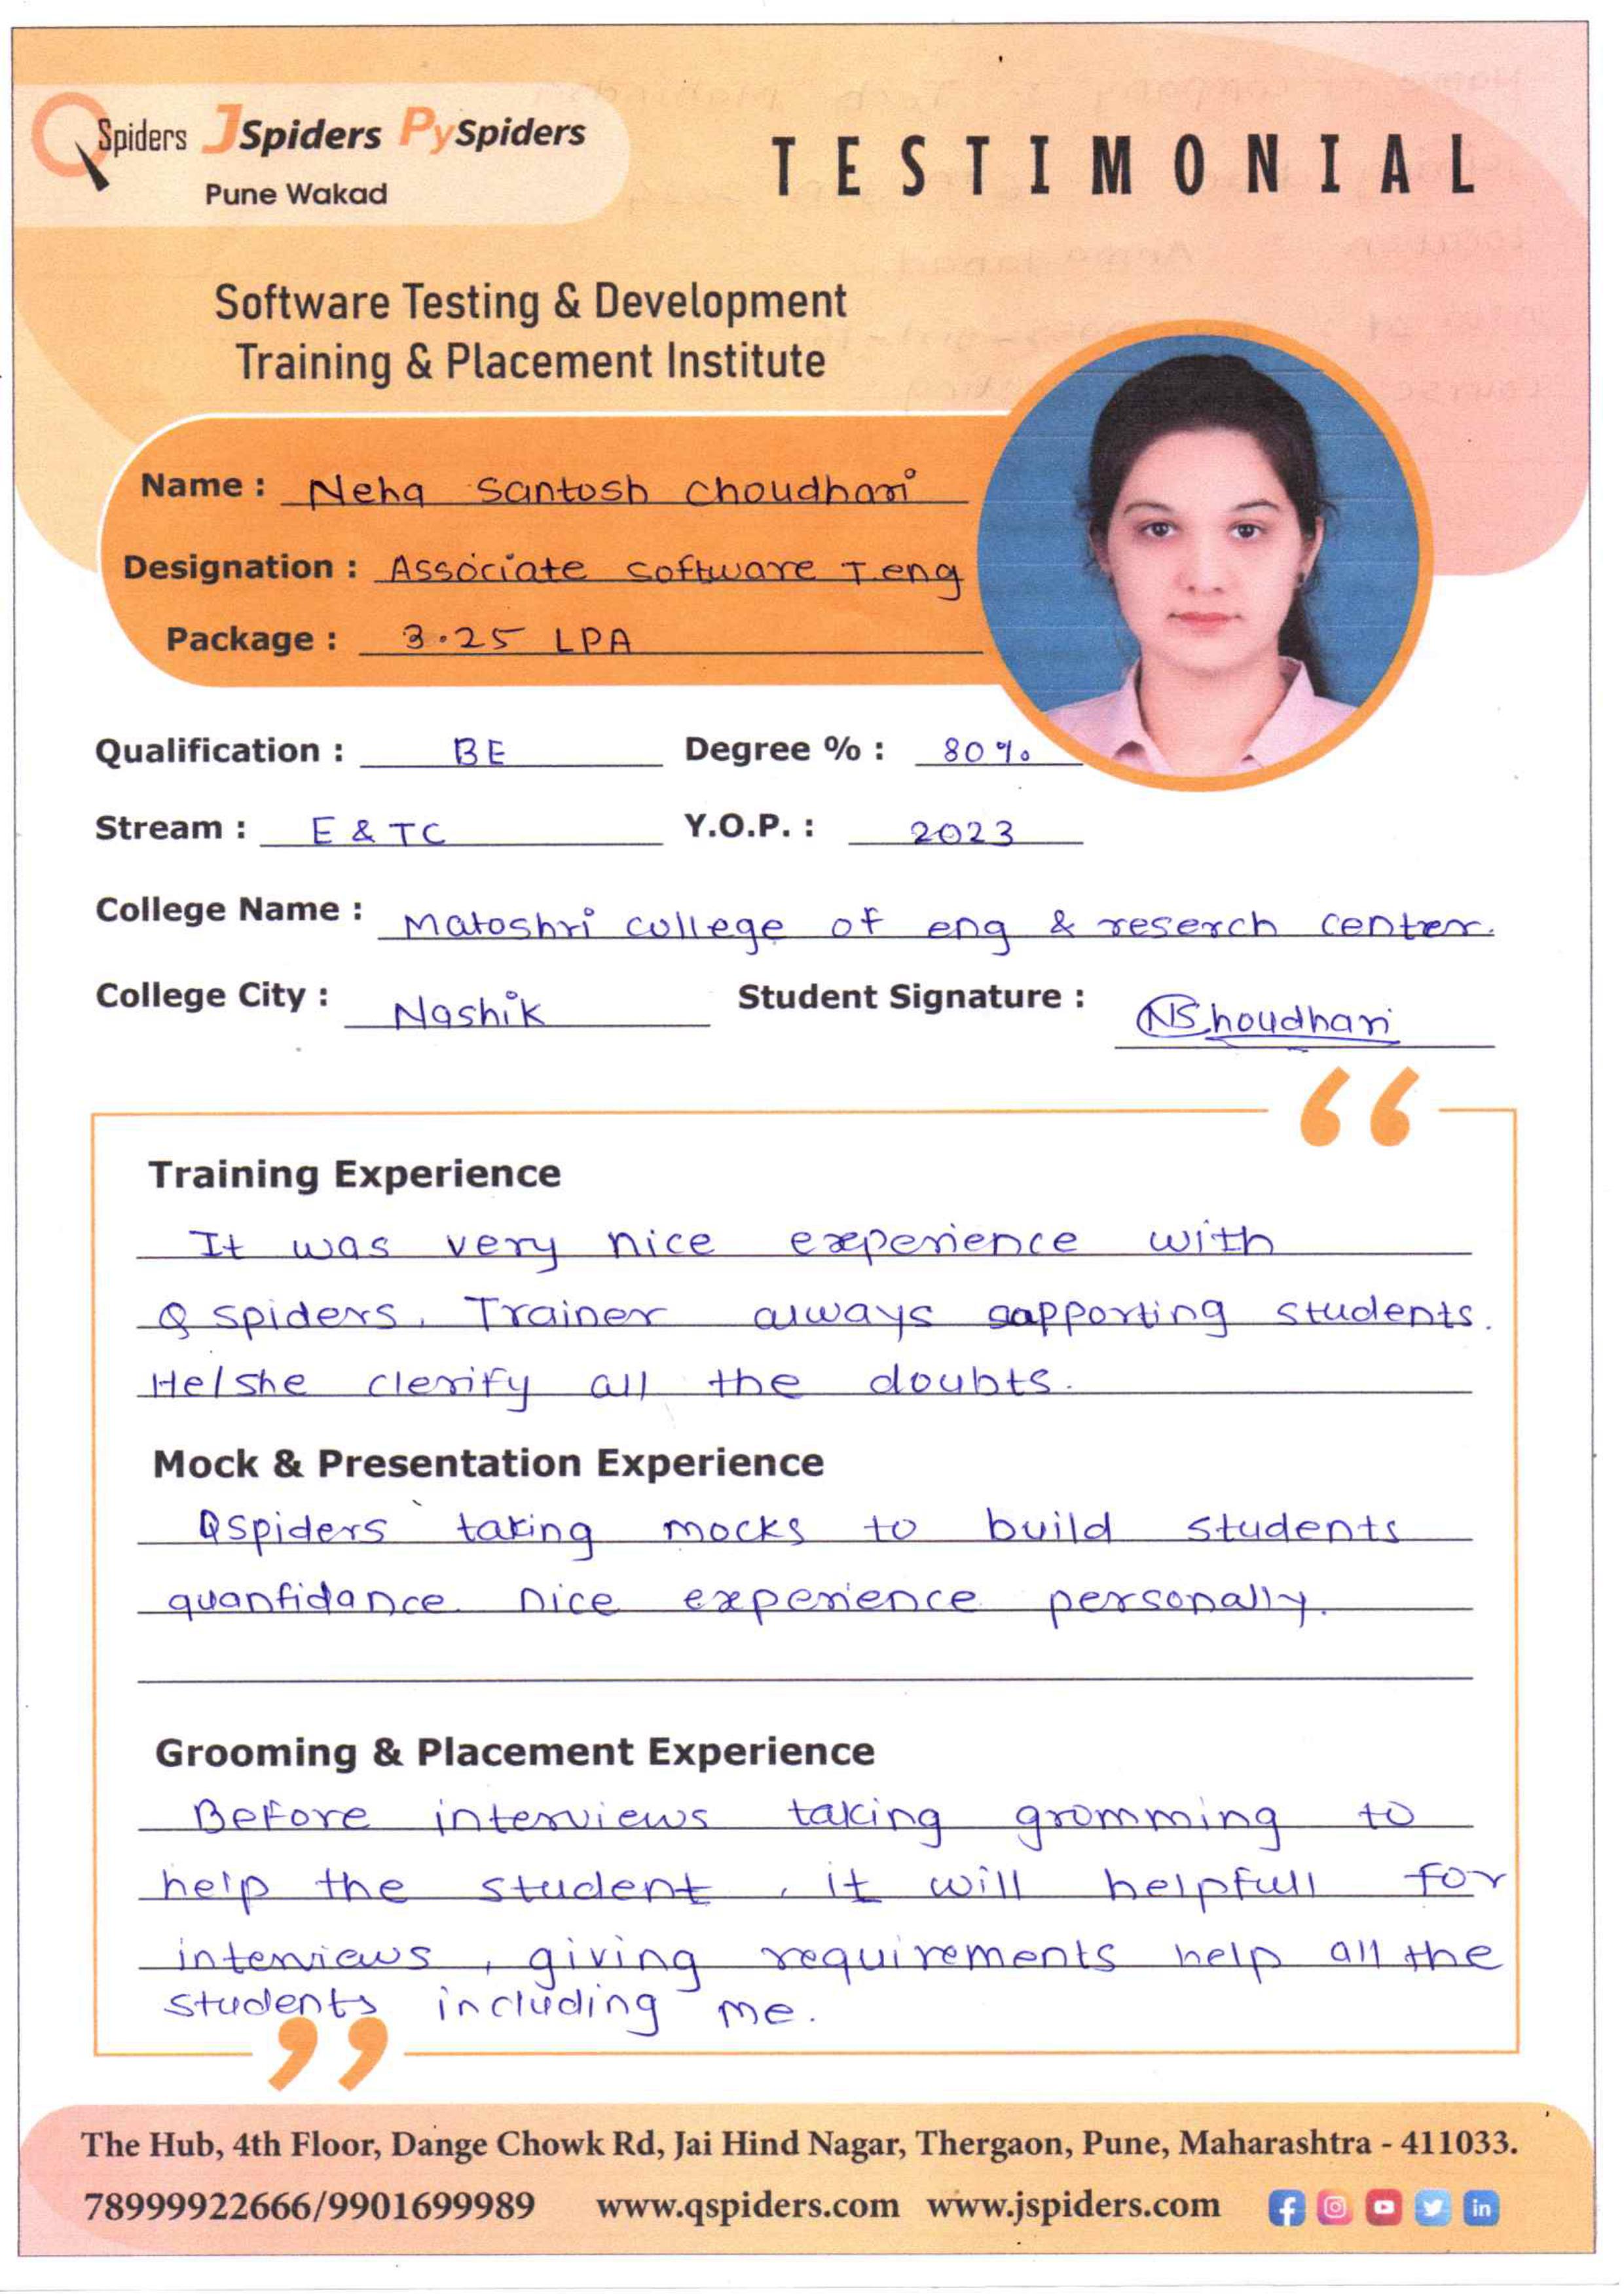 QSpiders JSpiders PySpiders
Pune Wakad
TESTIMONIAL
Software Testing & Development
Training & Placement Institute
Name : Neha Santosh Choudhari
Designation : Associate software T.eng
Package : 3.25 LPA
Qualification : BE Degree % : 80%
Stream : E & TC Y.O.P. : 2023
College Name : Matoshri college of eng & reserch center.
College City : Nashik Student Signature : NShoudhari
Training Experience
It was very nice experience with
Q spiders, Trainer always sapporting students.
He/she clerify all the doubts.
Mock & Presentation Experience
Qspiders taking mocks to build students
quanfidance. nice experience personally.
Grooming & Placement Experience
Before interviews taking gromming to
help the student, it will helpfull for
interviews, giving requirements help all the
students including me.
The Hub, 4th Floor, Dange Chowk Rd, Jai Hind Nagar, Thergaon, Pune, Maharashtra - 411033.
78999922666/9901699989 www.qspiders.com www.jspiders.com